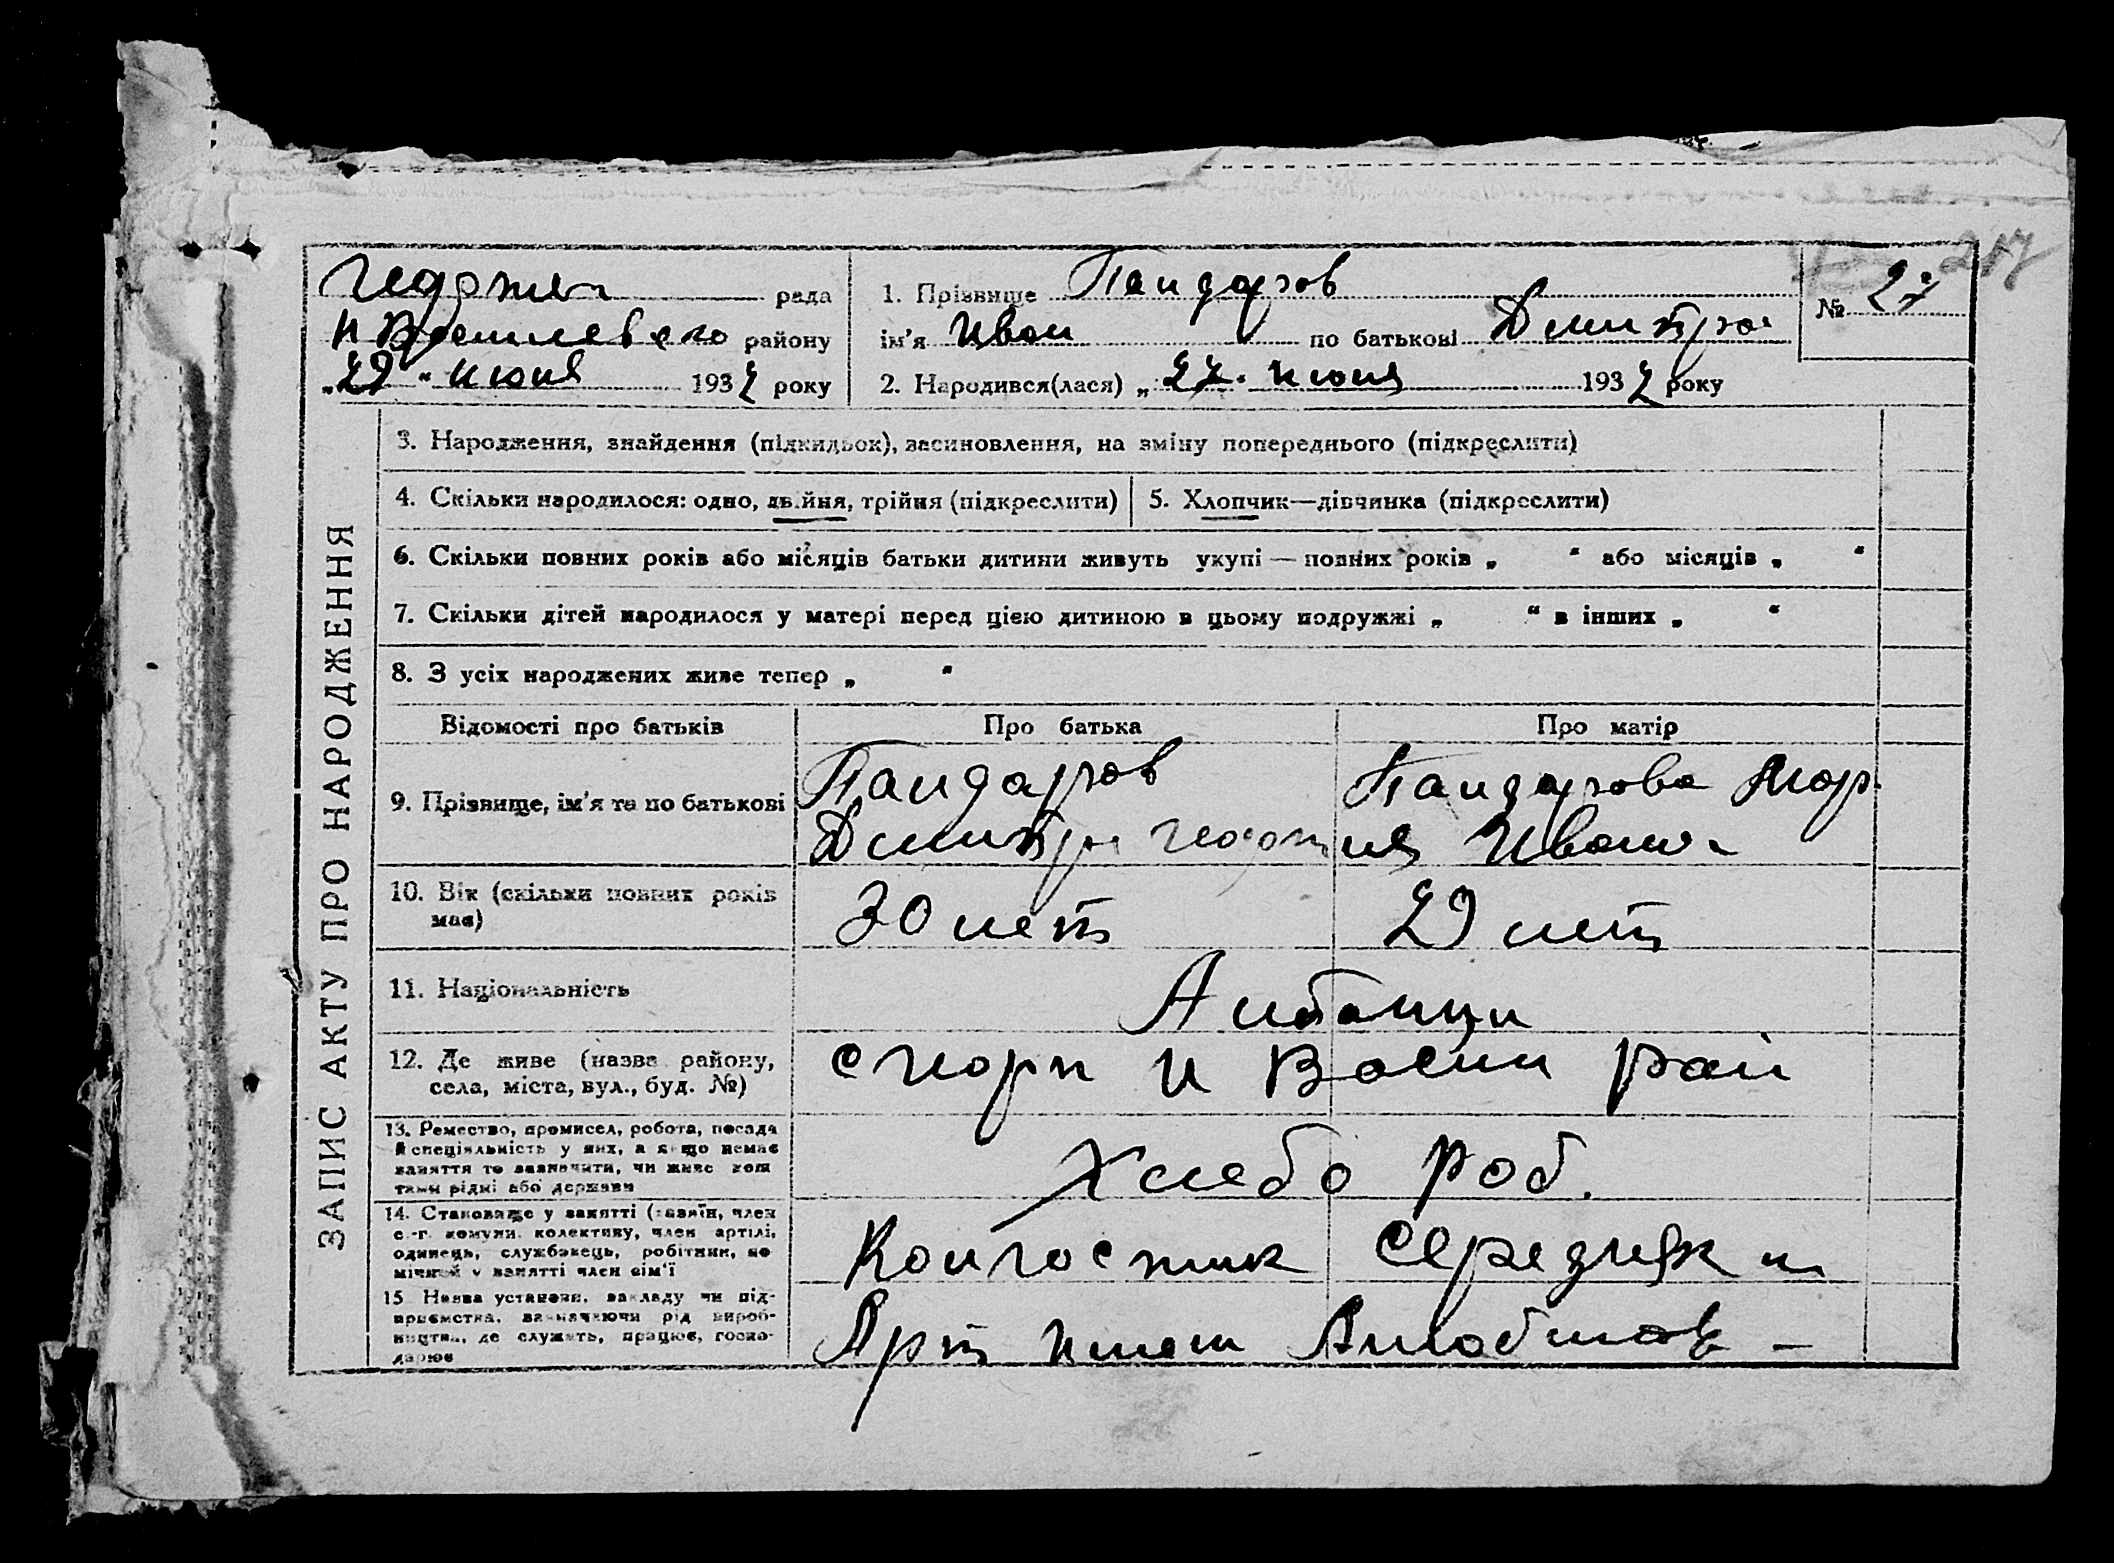 217
рада
1. Прізвище Пандаров
№ 27
району
ім'я Иван по батькові Дмитра
„29" июня 1932 року
2. Народився(лася) „27" июня 1932 року
ЗАПИС АКТУ ПРО НАРОДЖЕННЯ
3. Народження, знайдення (підкидьок), засиновлення, на зміну попереднього (підкреслити)
4. Скільки народилося: одно, двійня, трійня (підкреслити) 5. Хлопчик—дівчинка (підкреслити)
6. Скільки повних років або місяців батьки дитини живуть укупі — повних років „ " або місяців „ "
7. Скільки дітей народилося у матері перед цією дитиною в цьому подружжі „ " в інших „ "
8. З усіх народжених живе тепер „ "
Відомості про батьків Про батька Про матір
9. Прізвище, ім'я та по батькові
Пандаров
Дмитри
Пандарова Мар
ия Ивани
10. Вік (скільки повних років
має)
30 лет 29 лет
11. Національність Албанци
12. Де живе (назва району,
села, міста, вул., буд. №)
рай
13. Ремество, промисел, робота, посада
й спеціяльність у них, а якщо немає
заняття то зазначити, чи живе кош
тами рідні або держави
Хлебо роб.
14. Становище у занятті (хазяїн, член
с.-г. комуни, колективу, член артілі,
одинець, службовець, робітник, по
мічний у занятті член сім'ї
Колгоспник середняк
15 Назва установи, закладу чи під-
приємства, зазначаючи рід вироб-
ництва, де служить, працює, госпо-
дарює
Арт имени